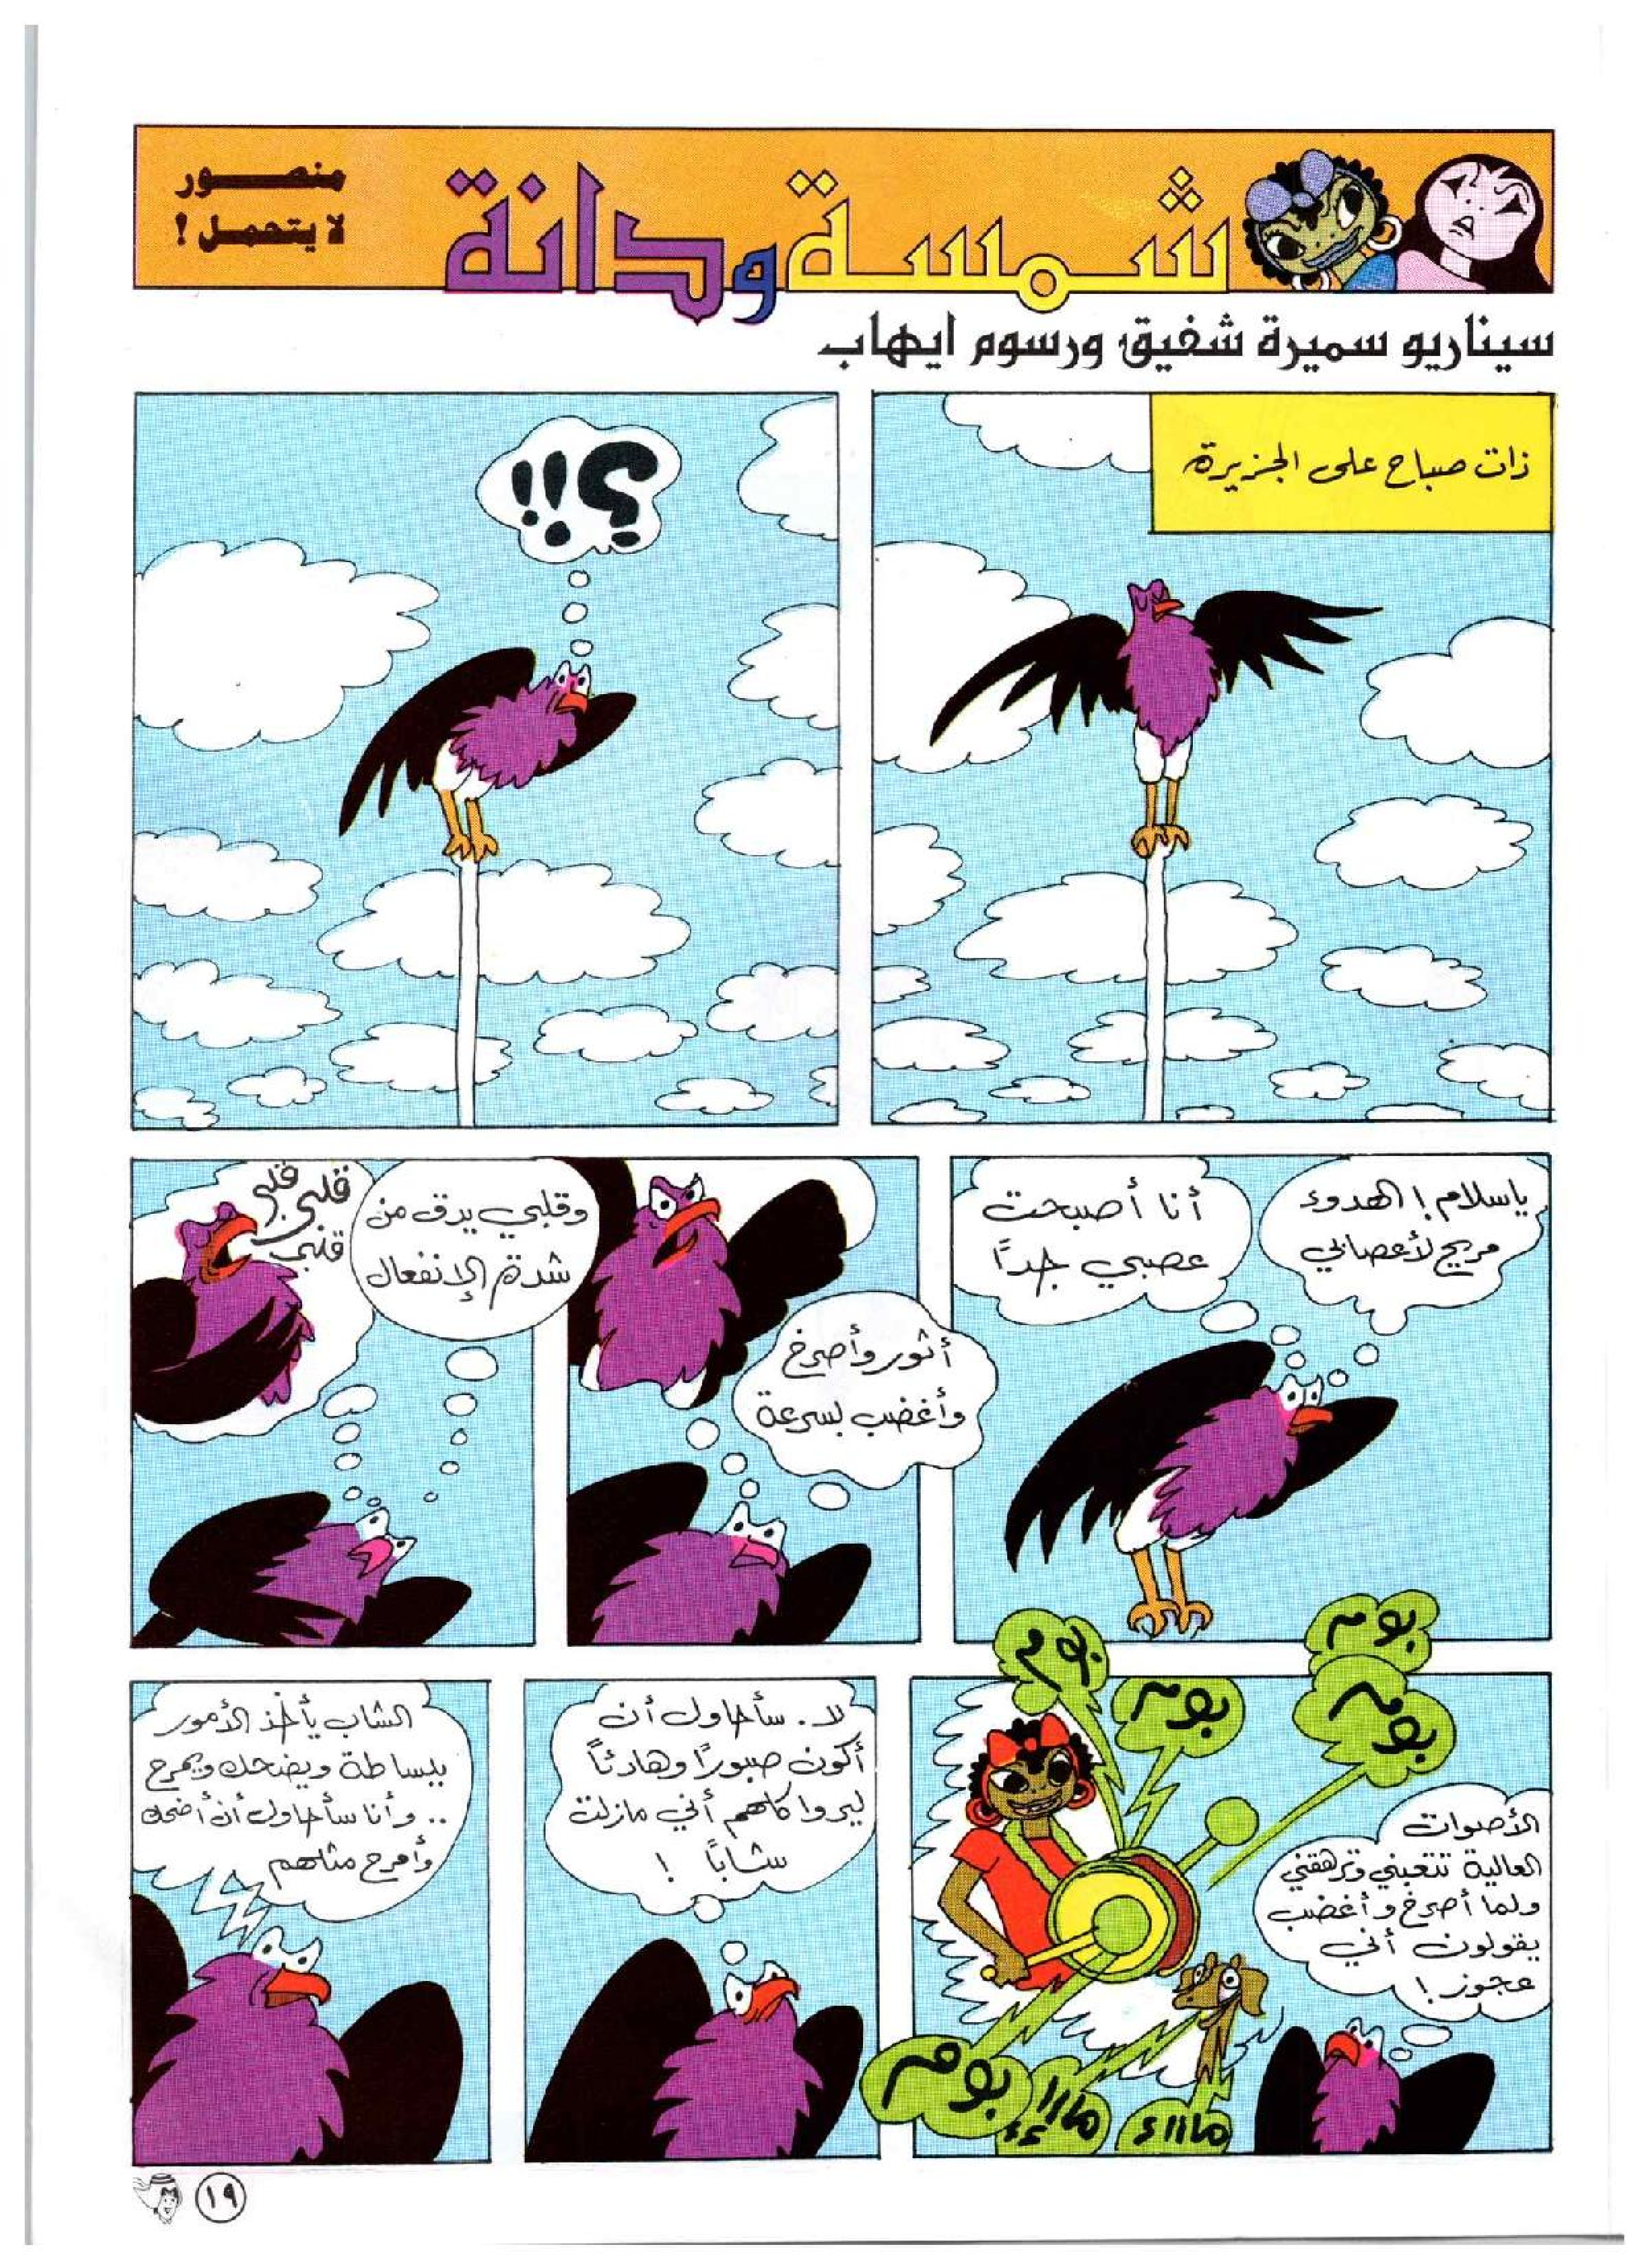 شمسة ودانة
منصور
لا يتحمل !
سيناريو سميرة شفيق ورسوم ايهاب
ذات صباح على الجزيرة
؟!!
ياسلام! الهدوء
مريح لأعصابي
أنا أصبحت
عصبي جداً
أثور وأصرخ
وأغضب بسرعة
وقلبي يدق من
شدة الإنفعال
قلبي قلبي
قلبي
بوم
بوم
بوم
بوم
الأصوات
العالية تتعبني وترهقني
ولما أصرخ وأغضب
يقولون أني
عجوز!
بوم
ماااء
ماااء
لا. سأحاول أن
أكون صبوراً وهادئاً
ليروا كلهم أني مازلت
شاباً !
الشاب يأخذ الأمور
ببساطة ويضحك ويمرح
.. وأنا سأحاول أن أضحك
وأمرح مثلهم
١٩